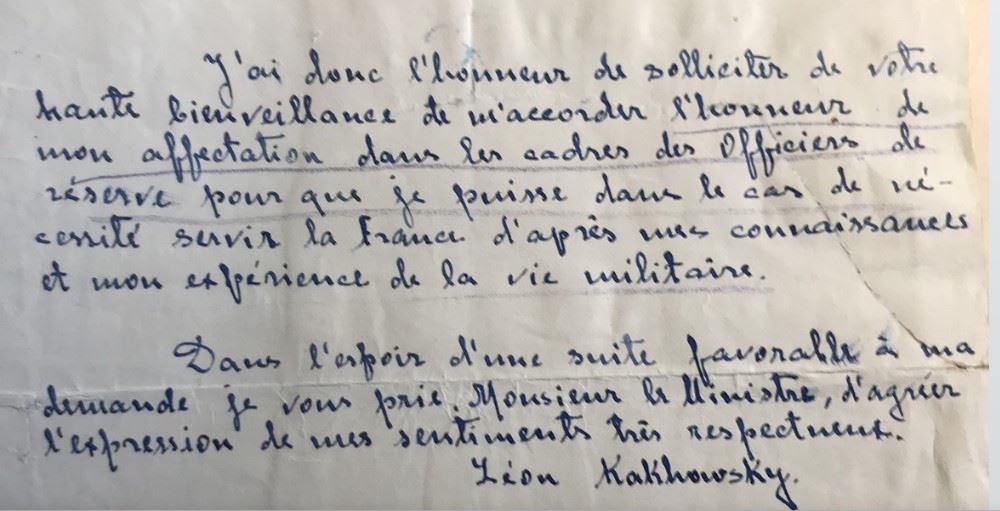 J'ai donc l'honneur de solliciter de votre
haute bienveillance de m'accorder l'honneur de
mon affectation dans les cadres des Officiers de
réserve pour que je puisse dans le cas de né-
cessité servir la France d'après mes connaissances
et mon expérience de la vie militaire.
Dans l'espoir d'une suite favorable à ma
demande je vous prie, Monsieur le Ministre, d'agréer
l'expression de mes sentiments très respectueux.
Léon Kakhowsky.